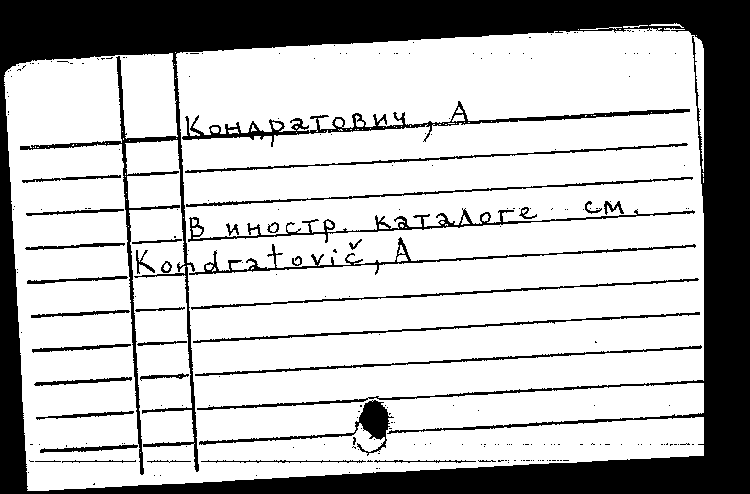 Кондратович, А
В иностр. каталоге см.
Kondratovič, A